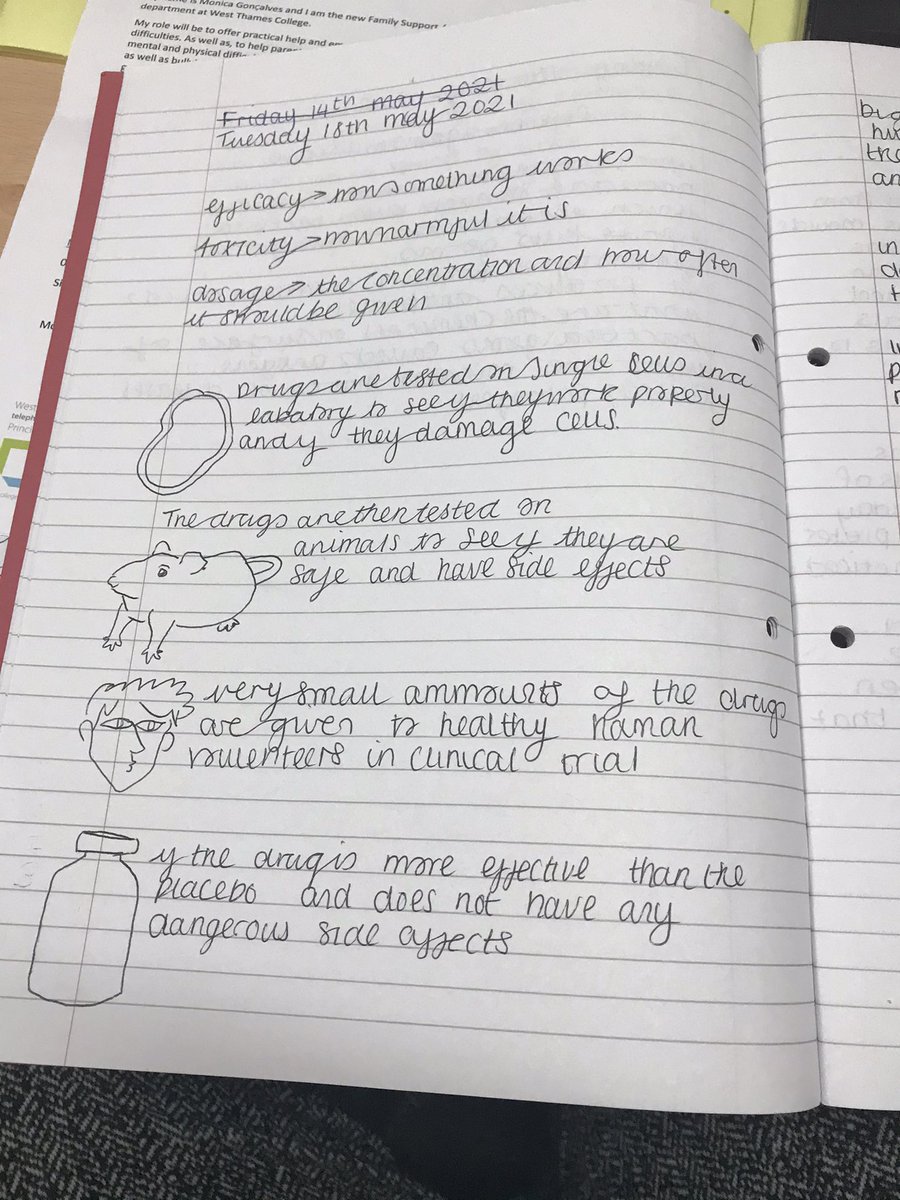 is Monica Gonçalves and I am the new Family Support
department at West Thames College.
My role will be to offer practical help and
difficulties. As well as, to help
mental and physical
as well as
Friday 14th may 2021
Tuesday 18th may 2021
efficacy > how something works
toxicity > how harmful it is
dosage > the concentration and how often
it should be given
Drugs are tested on single cells in a
labatory to see if they work properly
and if they damage cells.
The drugs are then tested on
animals to see if they are
safe and have side effects
very small ammounts of the drugs
are given to healthy human
voulenteers in clinical trial
if the drug is more effective than the
placebo and does not have any
dangerous side affects
West